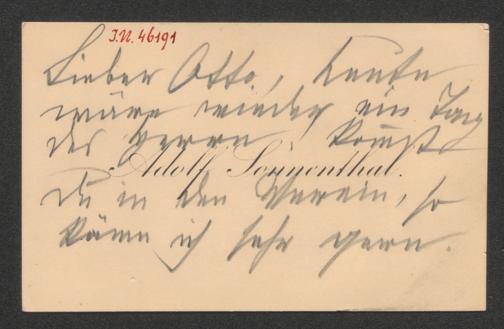 J.N. 46191
Lieber Otto, heute
wäre wieder ein Tag
des Herrn! Kommst
Adolf Sonnenthal.
Du in den Verein, so
käme ich sehr gern.